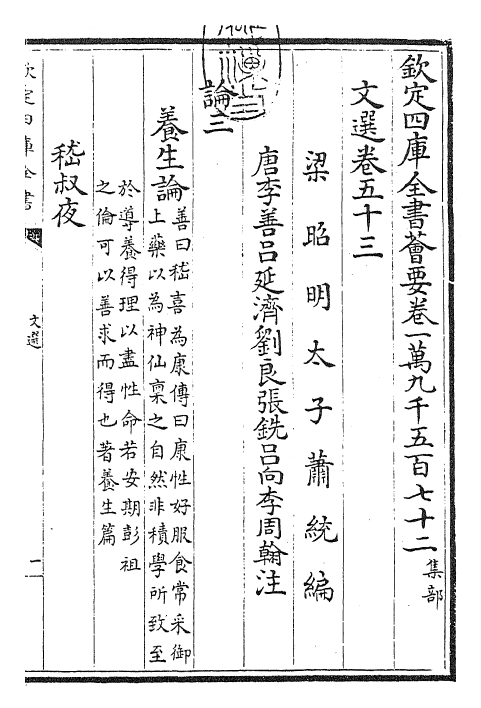 欽定四庫全書薈要卷一萬九千五百七十二 集部
文選卷五十三
梁昭明太子蕭統編
唐李善呂延濟劉良張銑呂向李周翰注
論三
養生論 善曰嵇喜為康傳曰康性好服食常采御
上藥以為神仙稟之自然非積學所致至
於導養得理以盡性命若安期彭祖
之倫可以善求而得也著養生篇
嵇叔夜
欽定四庫全書
文選
一